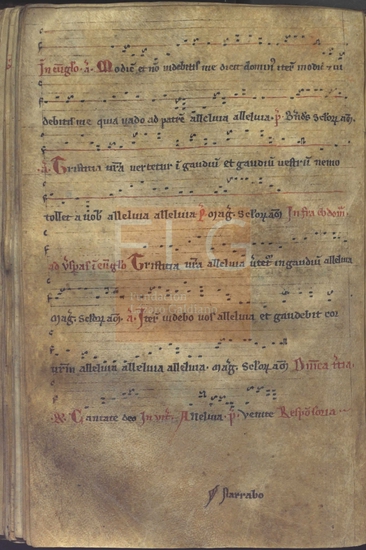 In eũglo. a. Modicũ et nõ uidebitis me dicit dominus iterũ modicũ et ui
debitis me quia uado ad patrẽ alleluia alleluia. p. Bñds seloɤ. am.
a. Tristitia ur̃a uertetur ĩ gaudiũ et gaudiũ uestrũ nemo
tollet a uob alleluia alleluia Mag. seloɤ. am Infra ebdom.
ad uesp̃as ĩ eũglo Tristitia ur̃a alleluia uertet in gaudiũ alleluia
mag. seloɤ. am. a. Iterũ uidebo uos alleluia et gaudebit cor
urũm alleluia alleluia alleluia. mag. seloɤ. am Dñica
Cantate deo Inuit. Alleluia. p. uenite Responsoria
starrabo
FLG